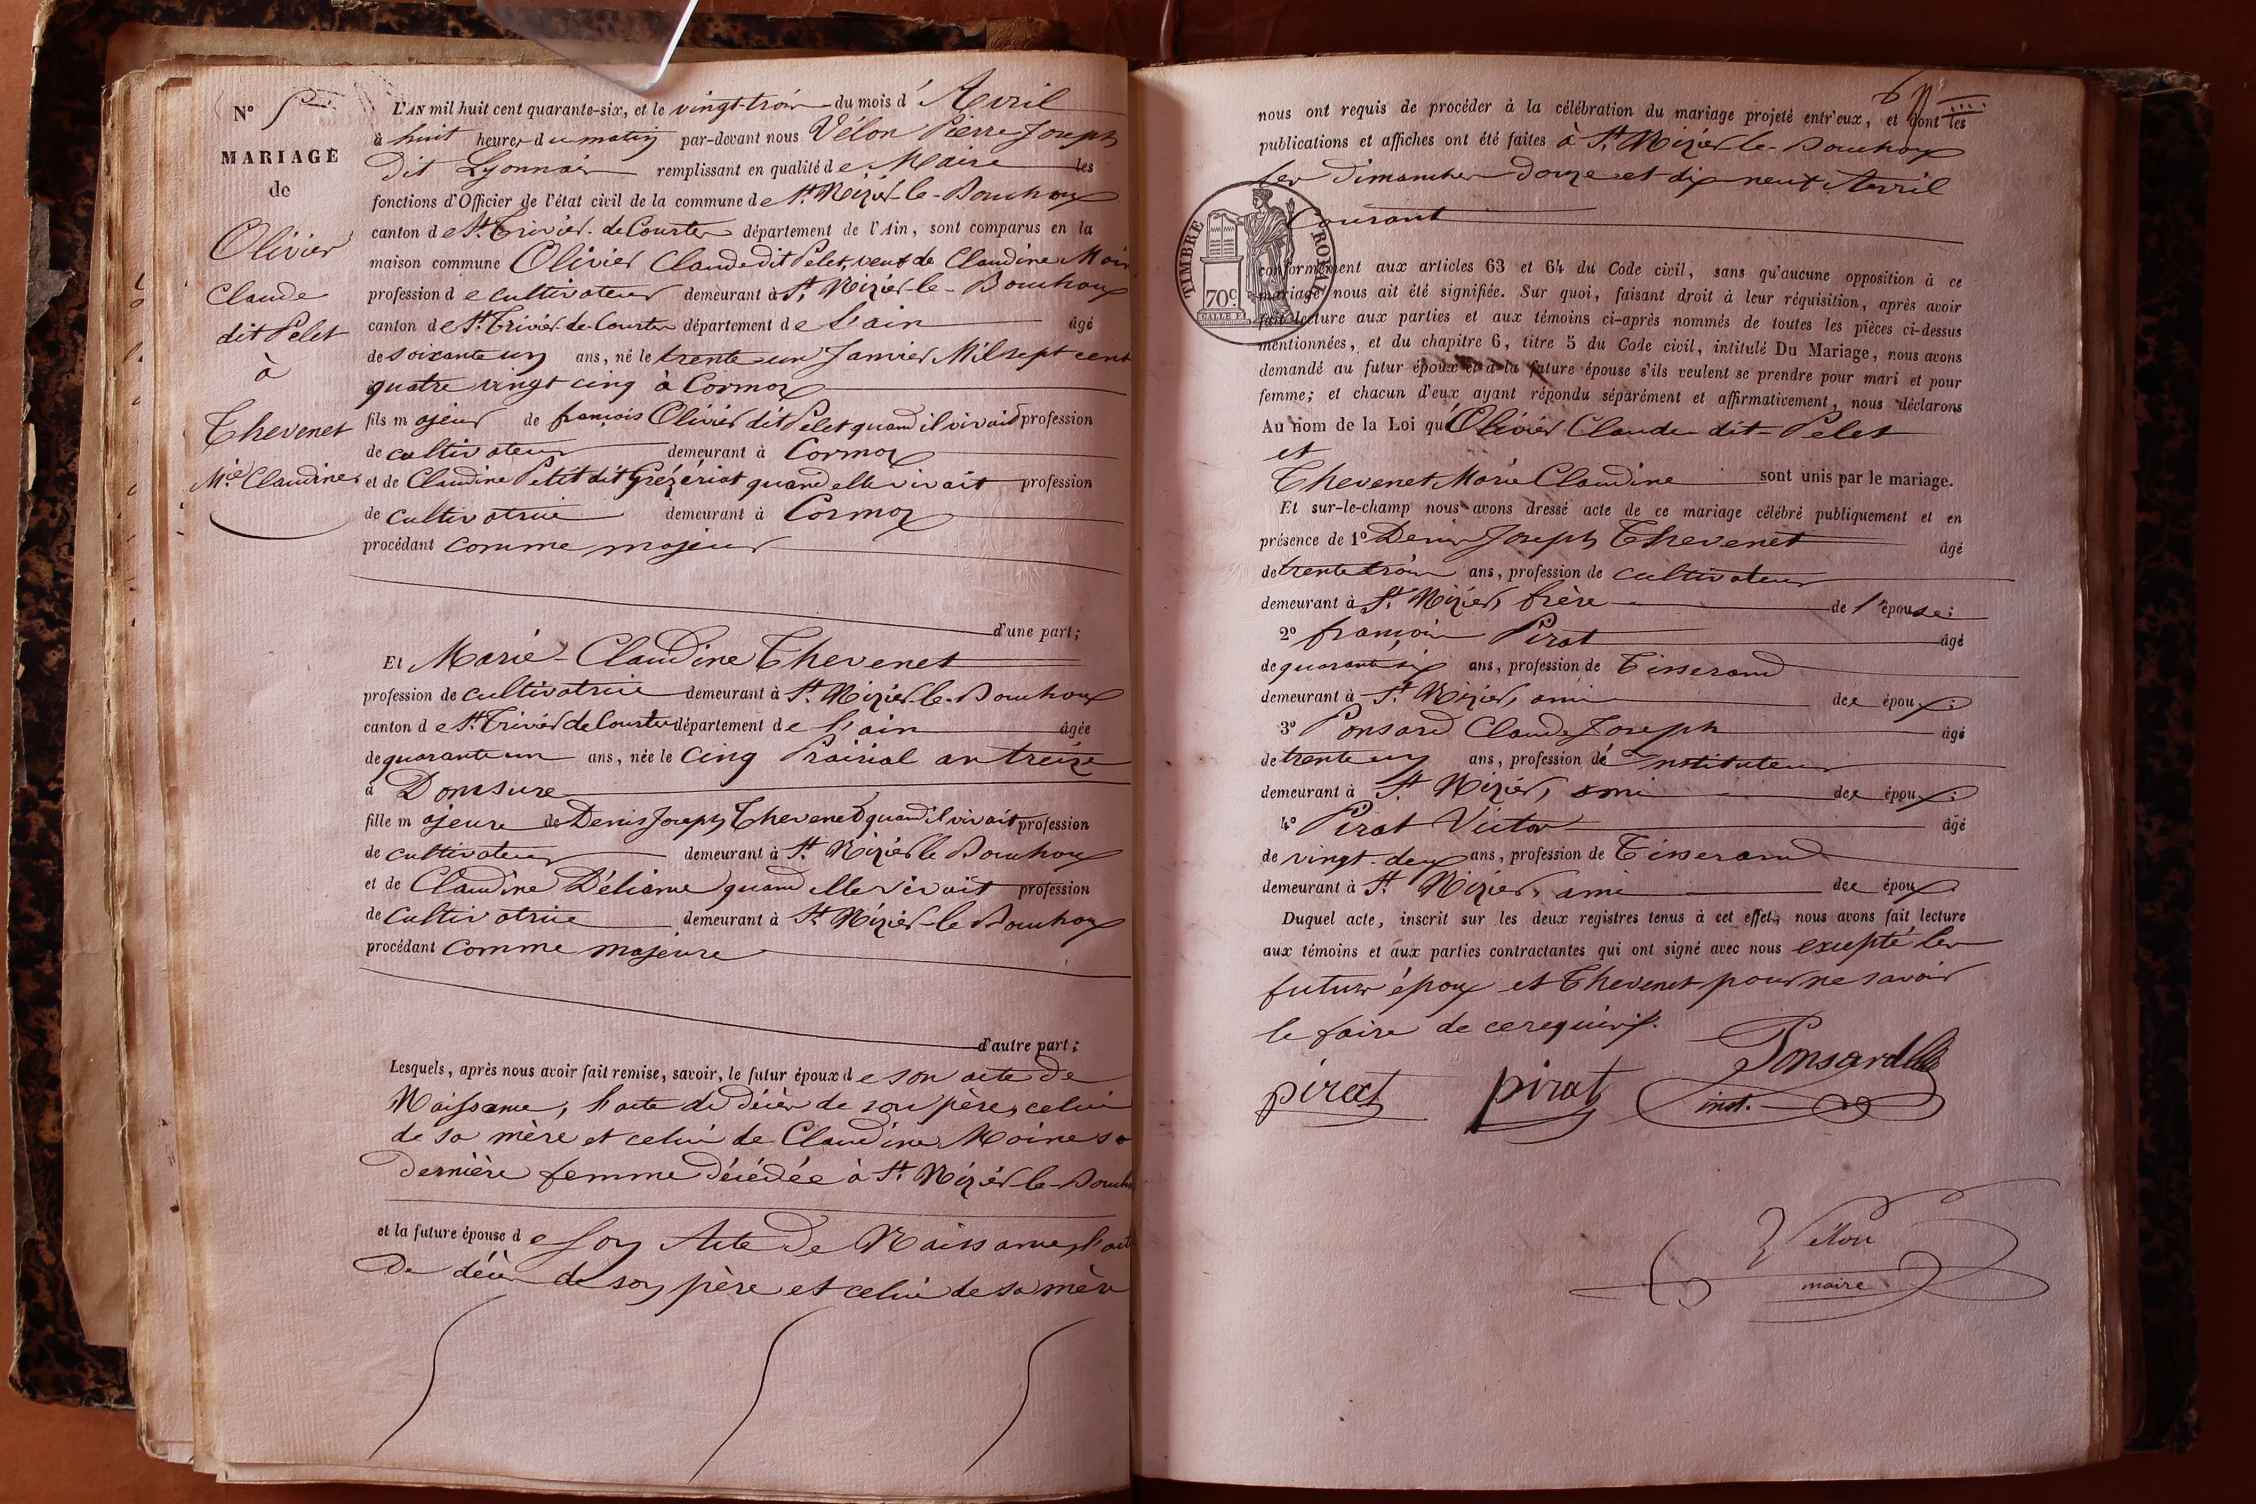 N° 5
MARIAGE
de
Olivier
Claude
dit Pelet
à
Thevenet
M.ie Claudine
L'AN mil huit cent quarante-six, et le vingt-trois du mois d'Avril
à huit heures du matin par-devant nous Vélon Pierre Joseph
dit Lyonnais remplissant en qualité de Maire les
fonctions d'Officier de l'état civil de la commune de St. Nizier-le-Bouchoux
canton de St. Trivier-de Courtes département de l'Ain, sont comparus en la
maison commune Olivier Claude dit Pelet, veuf de Claudine Moine
profession de cultivateur demeurant à St. Nizier-le-Bouchoux
canton de St. Trivier-de-Courtes département de l'ain âgé
de soixante un ans, né le trente-un Janvier Mil sept cent
quatre vingt cinq à Cormoz
fils majeur de françois Olivier dit Pelet quand il vivait profession
de cultivateur demeurant à Cormoz
et de Claudine Petit dit Grézériat quand elle vivait profession
de cultivatrice demeurant à Cormoz
procédant comme majeur
d'une part;
Et Marie-Claudine Thevenet
profession de cultivatrice demeurant à St. Nizier-le-Bouchoux
canton de St. Trivier de Courtes département de l'ain âgée
de quarante un ans, née le cinq Prairial an treize
à Domsure
fille majeure de Denis Joseph Thevenet quand il vivait profession
de cultivateur demeurant à St. Nizier le Bouchoux
et de Claudine quand elle vivait profession
de cultivatrice demeurant à St. Nizier-le Bouchoux
procédant comme majeure
d'autre part;
Lesquels, après nous avoir fait remise, savoir, le futur époux de son acte de
Naissance, l'acte de décès de son père, celui
de sa mère et celui de Claudine Moine sa
dernière femme décédée à St. Nizier-le-Bouch
et la future épouse de son Acte de Naissance, l'acte
de décès de son père et celui de sa mère
nous ont requis de procéder à la célébration du mariage projeté entr'eux, et dont les
publications et affiches ont été faites à St. Nizier-le-Bouchoux
les Dimanches douze et dix neuf Avril
Courant
TIMBRE ROYAL
70c.
conformément aux articles 63 et 64 du Code civil, sans qu'aucune opposition à ce
mariage nous ait été signifiée. Sur quoi, faisant droit à leur réquisition, après avoir
fait lecture aux parties et aux témoins ci-après nommés de toutes les pièces ci-dessus
mentionnées, et du chapitre 6, titre 5 du Code civil, intitulé Du Mariage, nous avons
demandé au futur époux et à la future épouse s'ils veulent se prendre pour mari et pour
femme; et chacun d'eux ayant répondu séparément et affirmativement, nous déclarons
Au nom de la Loi qu'Olivier Claude dit-Pelet
et
Thevenet Marie Claudine sont unis par le mariage.
Et sur-le-champ nous avons dressé acte de ce mariage célébré publiquement et en
présence de 1° Denis Joseph Thevenet âgé
de trente trois ans, profession de cultivateur
demeurant à St. Nizier, frère de l'épouse;
2° françois Pirat âgé
de quarante six ans, profession de Tisserand
demeurant à St. Nizier, ami des époux;
3° Ponsard Claude Joseph âgé
de trente un ans, profession de Instituteur
demeurant à St. Nizier, ami des époux;
4° Pirat Victor âgé
de vingt-deux ans, profession de Tisserand
demeurant à St. Nizier, ami des époux.
Duquel acte, inscrit sur les deux registres tenus à cet effet, nous avons fait lecture
aux témoins et aux parties contractantes qui ont signé avec nous excepté les
futurs époux et Thevenet pour ne savoir
le faire de ce requis.
pirat pirat Ponsard
inst.
Vélon
maire